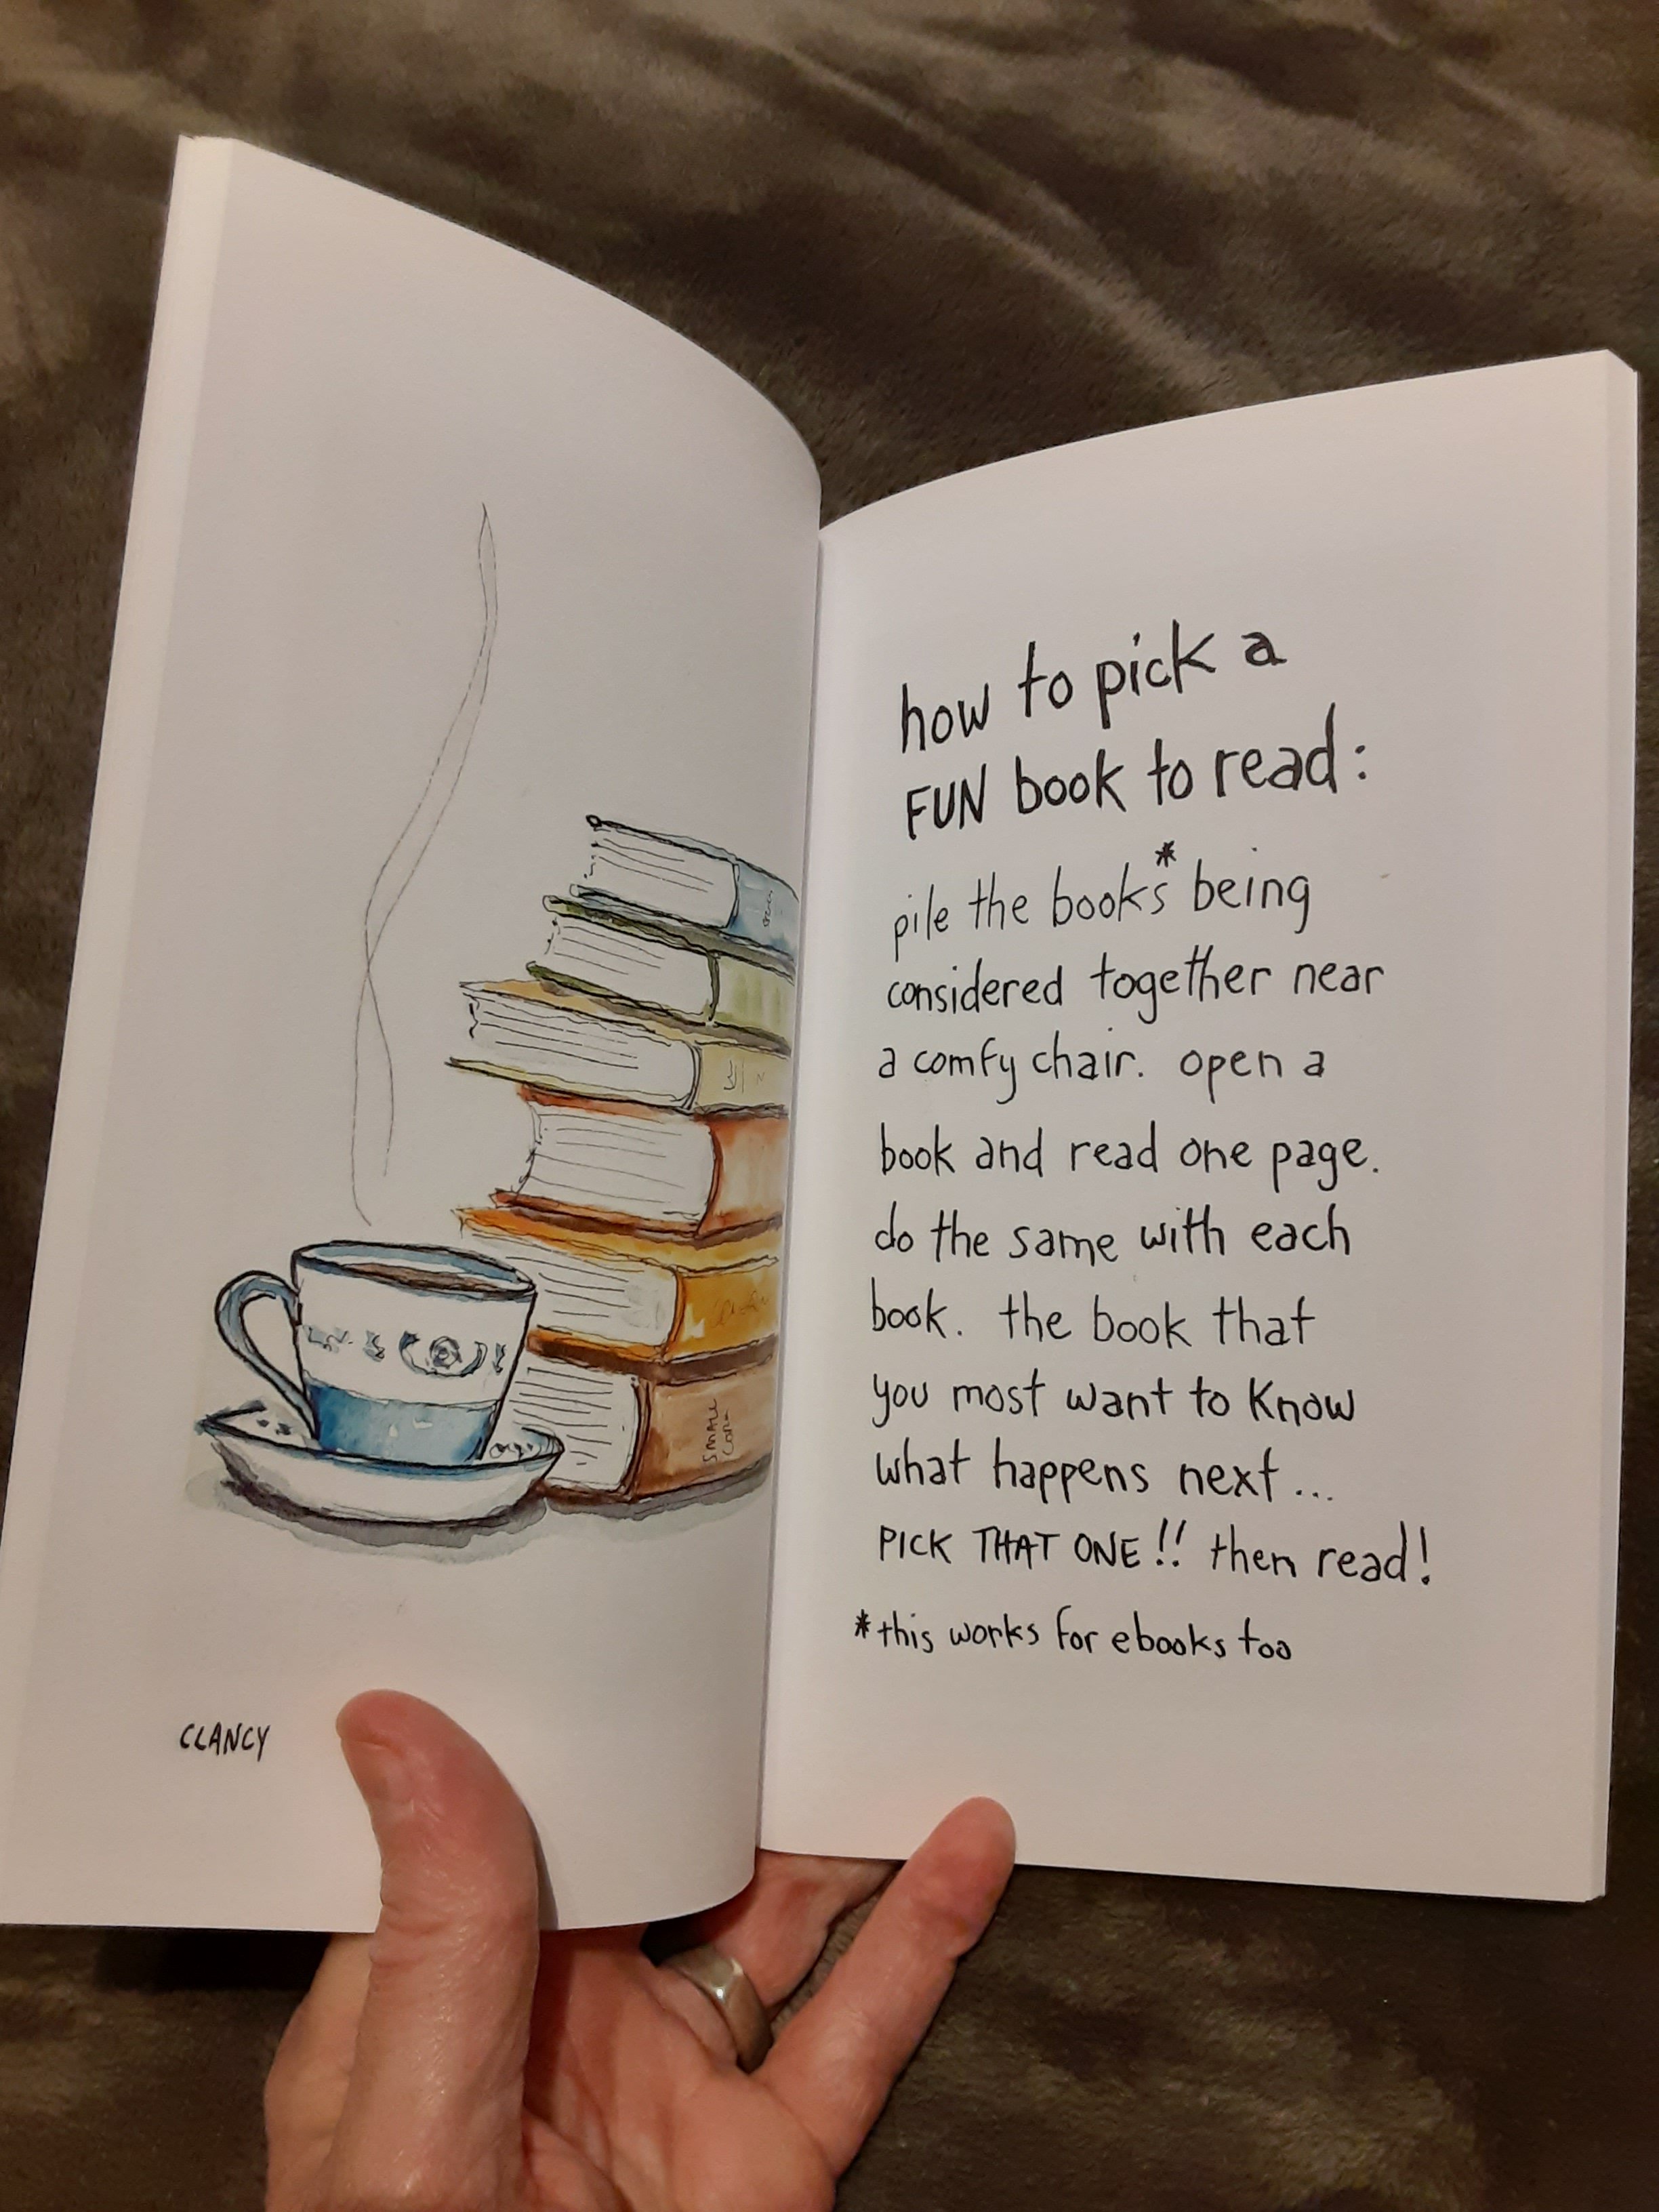 SMALL
CLANCY
how to pick a
FUN book to read:
pile the books* being
considered together near
a comfy chair. open a
book and read one page.
do the same with each
book. the book that
you most want to know
what happens next...
PICK THAT ONE!! then read!
*this works for ebooks too